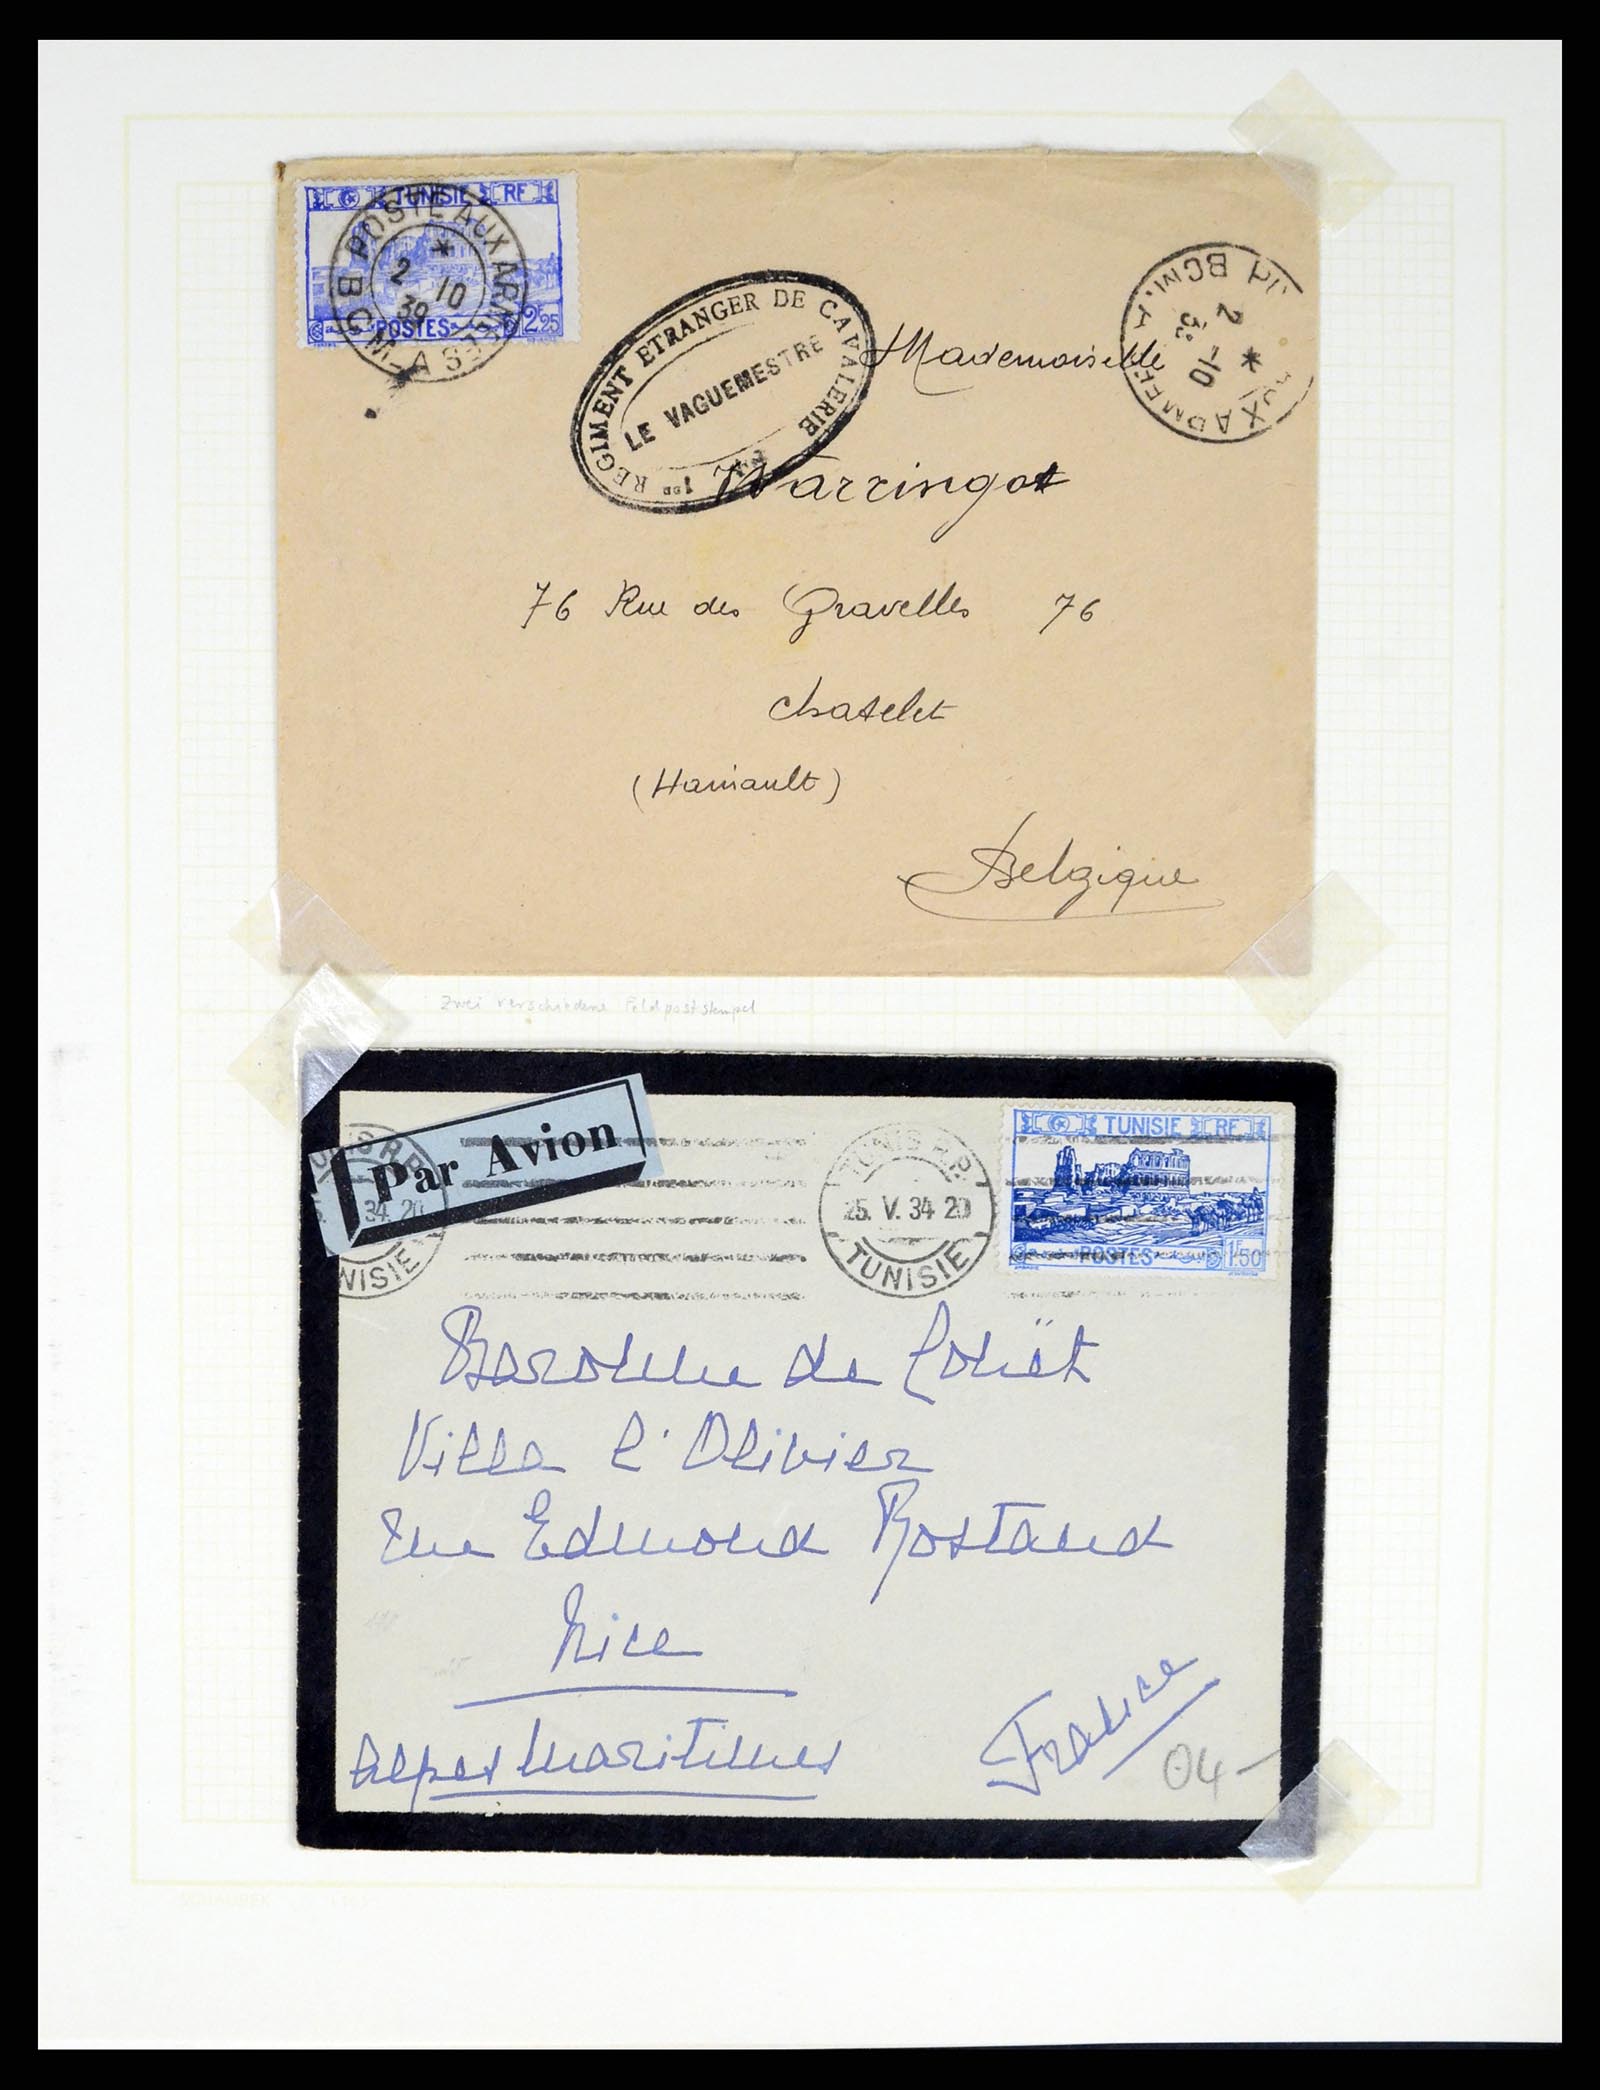 TUNISIE RF
POSTES 2F25
POSTE AUX ARMEES
2 10
39
1ER REGIMENT ETRANGER DE CAVALERIE
LE VAGUEMESTRE
AUX ARMEES
2 -10
Mademoiselle
Warringot
76 Rue des Gravelles 76
Chatelet
(Hainault)
Belgique
Zwei verschiedene Feldpoststempel
Par Avion
TUNIS R.P.
34 20
TUNISIE
TUNIS R.P.
25. V. 34 20
TUNISIE
TUNISIE RF
POSTES 1F50
Baronne de
Villa l'Olivier
Rue Edmond Rostand
Nice
Alpes Maritimes
France
04-